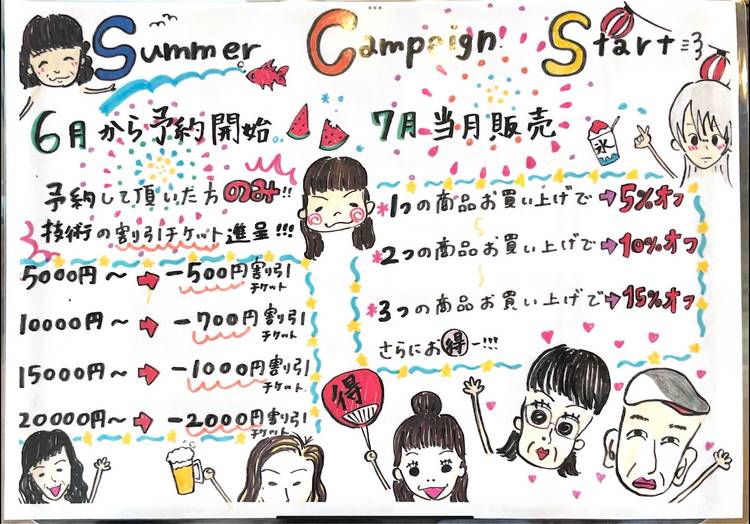 Summer Campaign Start
6月から予約開始
予約して頂いた方のみ!!
技術の割り引チケット進呈!!!
5000円〜➡−500円割り引チケット
10000円〜➡−700円割り引チケット
15000円〜➡−1000円割り引チケット.
20000円〜➡−2000円割り引チケット
7月当月販売
氷
*1つの商品お買い上げで→5%オフ
*2つの商品お買い上げで→10%オフ
*3つの商品お買い上げで→15%オフ
さらにお得ー!!!
得